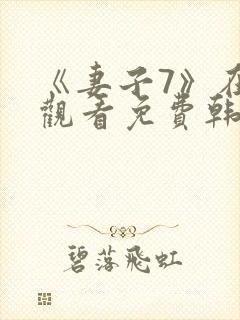 《妻子7》在
觀看免費韩
碧落飛虹